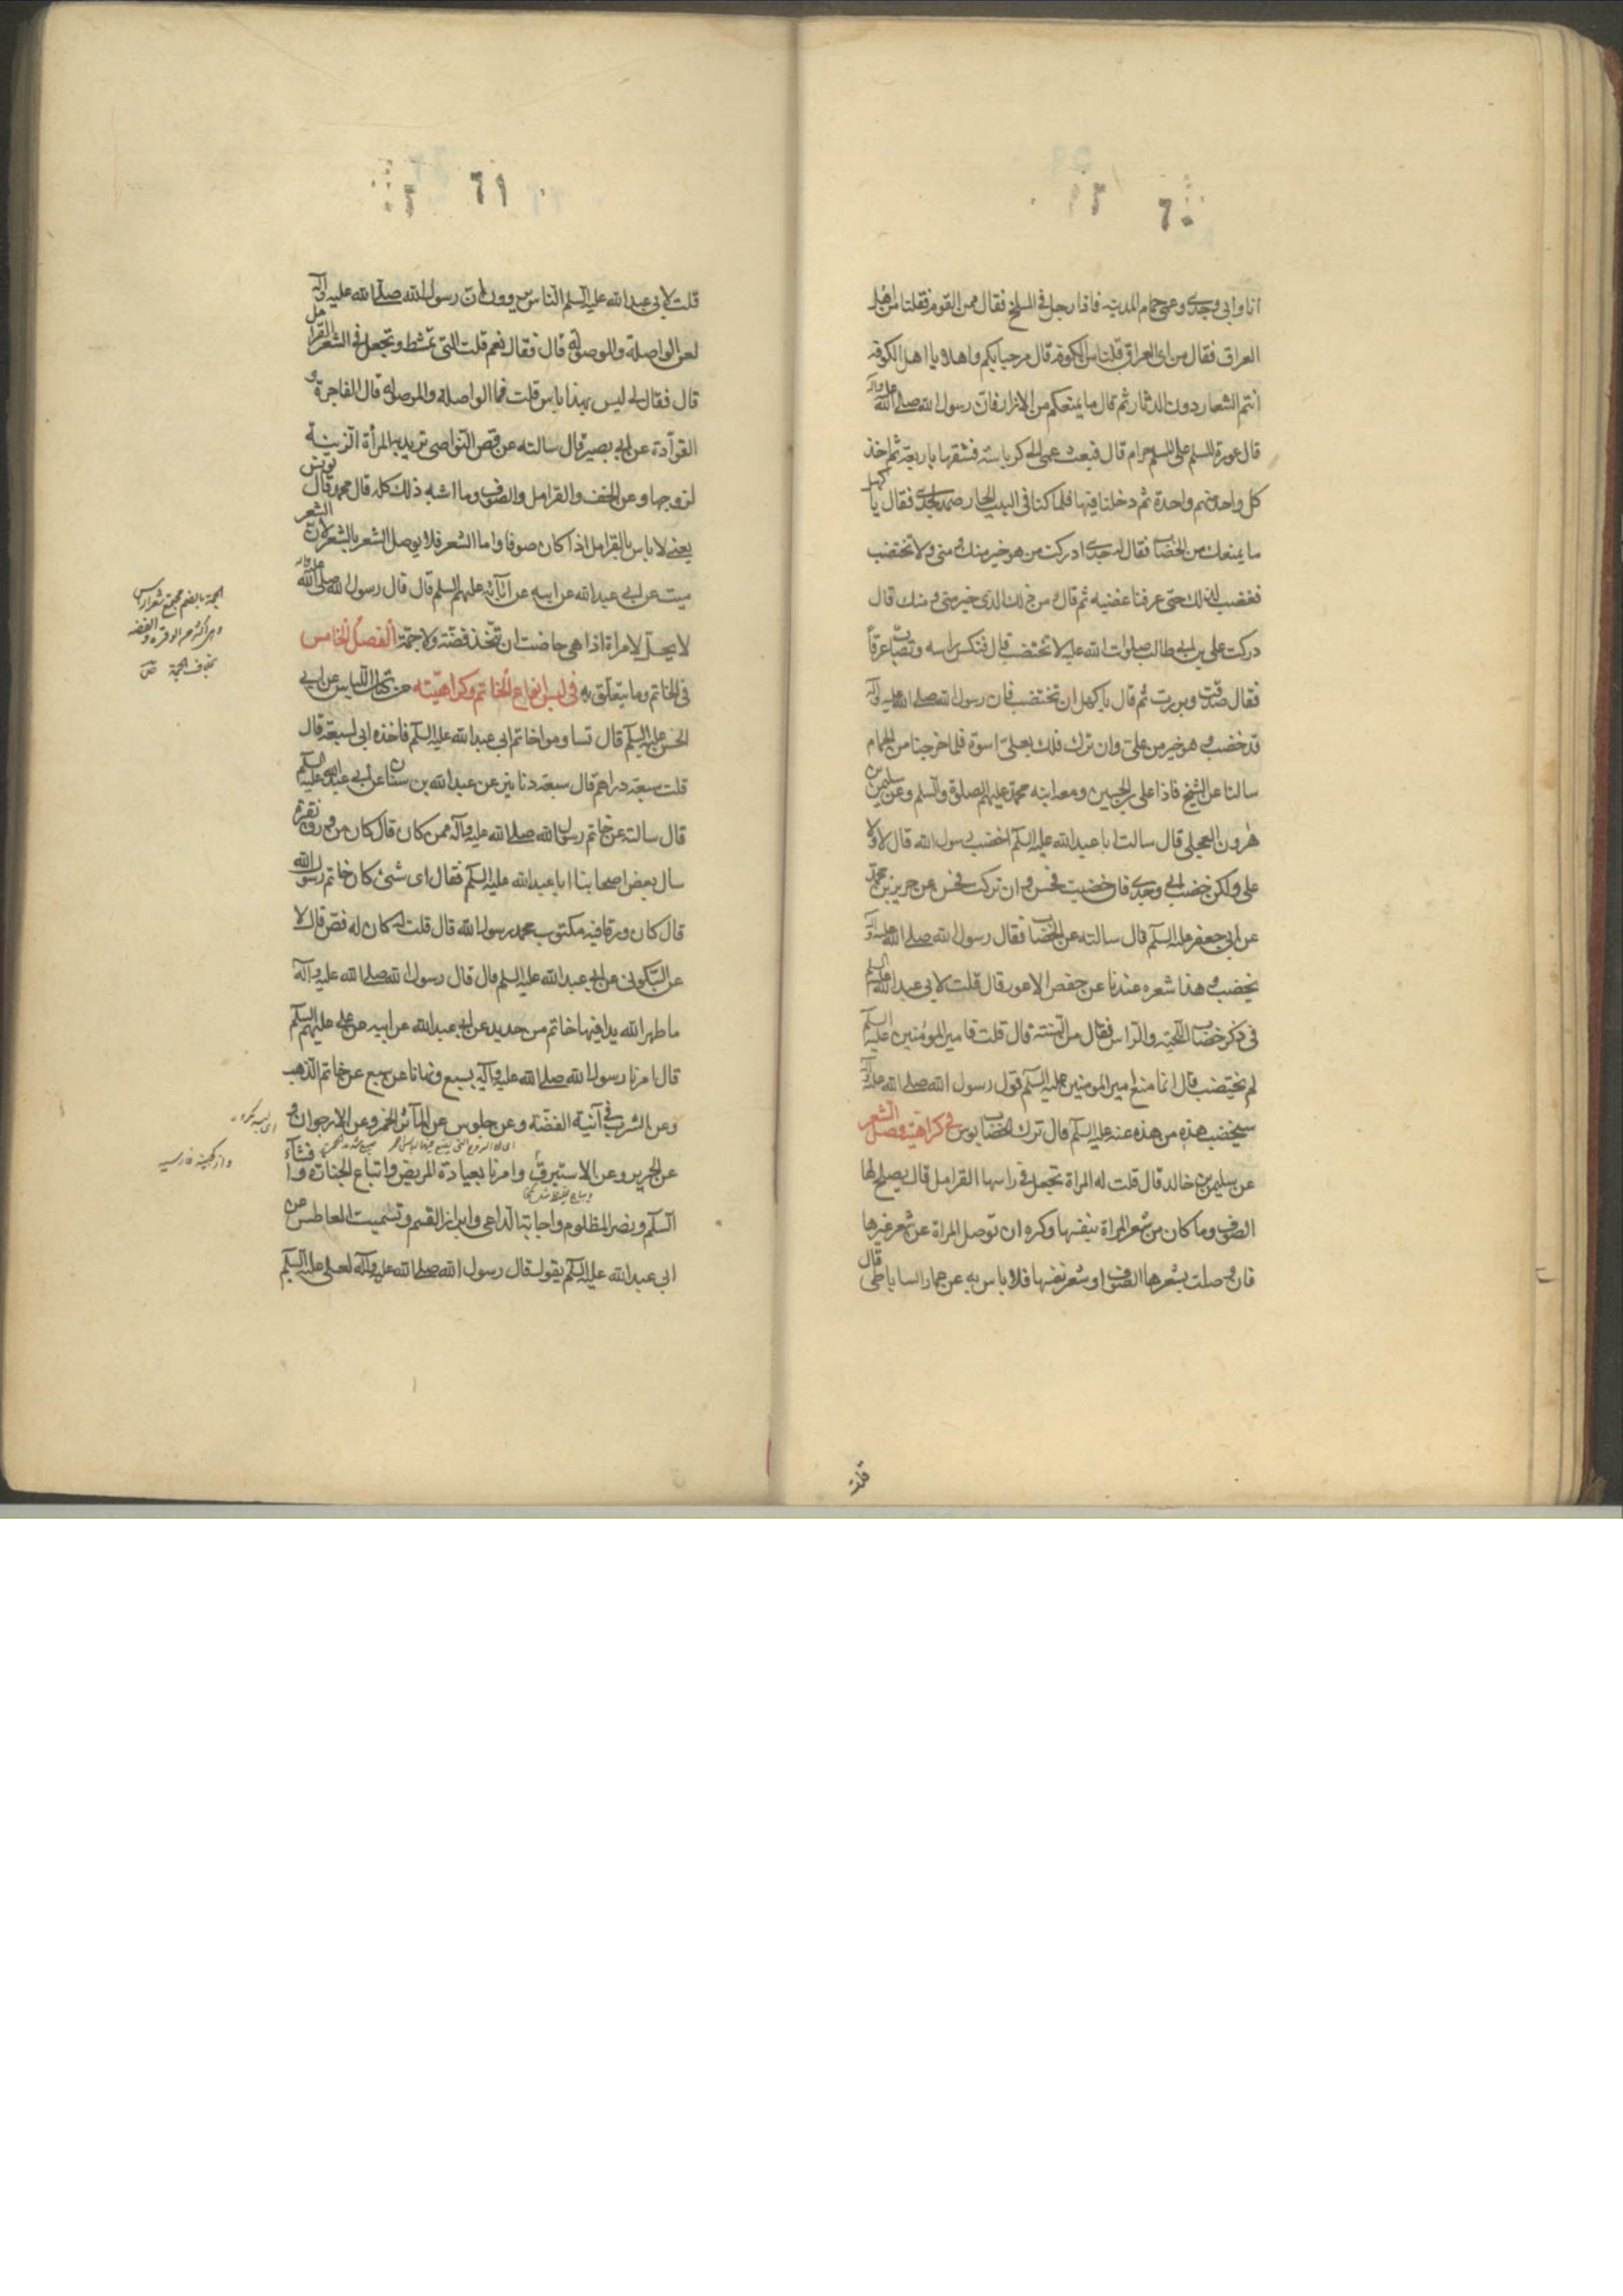 ٦٠
انا وابى وجدى وعمى حمام المدينه فاذا رجل فى المسلخ فقال ممن القوم فقلنا من اهل
العراق فقال من اى العراق قلنا من الكوفه قال مرحبا بكم واهلا يا اهل الكوفه
انتم الشعار دون الدثار ثم قال ما يمنعكم من الازار فان رسول الله صلى الله عليه وآله
قال عورة المسلم على المسلم حرام قال فبعث عمى الى كرباسة فشقها باربعة ثم اخذ
كل واحد منهم واحدة ثم دخلنا فيها فلما كنا فى البيت الحار صمد لجدى فقال يا كهل
ما يمنعك من الخضاب فقال له جدى ادركت من هو خير منك ومنى ولا تختضب
فغضب لذلك حتى عرفنا غضبه ثم قال ومن ذلك الذى خير منى ومنك قال
دركت على بن ابى طالب صلوات الله عليه لا تختضب قال فنكس راسه وتصاب عرقاً
فقال صدقت وبررت ثم قال يا كهل ان تختضب فان رسول الله صلى الله عليه وآله
قد خضب وهو خير من على وان تترك فلك بعلى اسوة فلما خرجنا من الحمام
سالنا عن الشيخ فاذا على بن الحسين ومعه ابنه محمد عليهم الصلوة والسلم وعن سليمن بن
هرون العجلى قال سالت ابا عبد الله عليه السلم اخضب رسول الله قال لا ولا
على ولكن خضب ابى وجدى فان خضبت فحسن وان تركت فحسن عن حريز بن محمد
عن ابى جعفر عليه السلم قال سالته عن الخضاب فقال رسول الله صلى الله عليه وآله
يخضب وهذا شعره عندنا عن حفص الاعور قال قلت لابى عبد الله عليه السلم
فى ذكر خضاب اللحية والراس فقال من السنة قال قلت فامير المومنين عليه السلم
لم يختضب قال انما منع امير المومنين عليه السلم قول رسول الله صلى الله عليه وآله
سيخضب هذه من هذه عنه عليه السلم قال ترك الخضاب بوس فى كراهية وصل الشعر
عن سليمن بن خالد قال قلت له المراة تجعل فى راسها القرامل قال يصلح لها
الصوف وما كان من شعر المراة بنفسها وكره ان توصل المراة من شعر غيرها
فان وصلت بشعرها الصوف او شعر نفسها فلا باس به عن عمار الساباطى قال
قلت
٦١
قلت لابى عبد الله عليه السلم الناس يروون ان رسول الله صلى الله عليه وآله
لعن الواصلة والموصولة قال فقال نعم قلت التى تمشط وتجعل فى الشعر القرامل
قال فقال لى ليس بهذا باس قلت فما الواصلة والموصولة قال الفاجرة و
القوادة عن ابى بصير قال سالته عن قص النواصى تريد به المرأة الزينة
لزوجها وعن الحف والقرامل والصوف وما اشبه ذلك كله قال محمد قال يونس
يعنى لا باس بالقرامل اذا كان صوفا واما الشعر فلا يوصل الشعر بالشعر لان الشعر
ميت عن ابى عبد الله عن ابيه عن آبائه عليهم السلم قال قال رسول الله صلى الله عليه وآله
لا يحل لامراة اذا هى حاضت ان تتخذ قصّة ولا جمّة الفصل الخامس
فى الخاتم وما يتعلق به فى لبس انواع الخاتم وكراهيته من كتاب اللباس عن ابى
الحسن عليه السلم قال تساوموا خاتم ابى عبد الله عليه السلم فاخذه ابى لسبعة قال
قلت سبعة دراهم قال سبعة دنانير عن عبد الله بن سنان عن ابى عبد الله عليه السلم
قال سالته عن خاتم رسول الله صلى الله عليه وآله ممن كان قال كان من ورق نقرة
سال بعض اصحابنا ابا عبد الله عليه السلم فقال اى شىء كان خاتم رسول الله
قال كان ورقا فيه مكتوب محمد رسول الله قال قلت له كان له فصّ قال لا
عن السكونى عن ابى عبد الله عليه السلم قال قال رسول الله صلى الله عليه وآله
ما طهر الله يدا فيها خاتم من حديد عن ابى عبد الله عن ابيه عن على عليهم السلم
قال امرنا رسول الله صلى الله عليه وآله بسبع ونهانا عن سبع عن خاتم الذهب
وعن الشرب فى آنية الفضّة وعن جلوس عن المآثر الحمر وعن الارجوان و
عن الحرير وعن الاستبرق وامرنا بعيادة المريض واتباع الجنازة وافشآء
السلم ونصر المظلوم واجابة الداعى وابرار القسم وتسميت العاطس عن
ابى عبد الله عليه السلم يقول قال رسول الله صلى الله عليه وآله لعلى عليه السلم
الجمة بالضم مجتمع شعر الراس